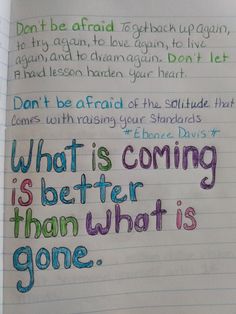 Don't be afraid To get back up again,
to try again, to love again, to live
again, and to dream again. Don't let
A hard lesson harden your heart.
Don't be afraid of the solitude that
comes with raising your standards
*Ebonee Davis*
What is coming
is better
than what is
gone.